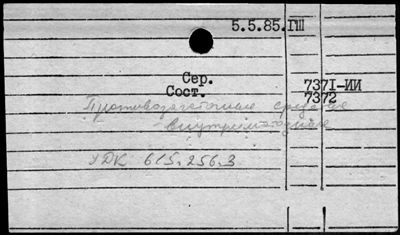 5.5.85.ГШ
Сер.
Сост.
7371-ИИ
7372
Противозачаточные средства
внутриматочные
УДК 615.256.3